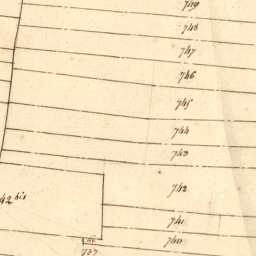 749
748
747
746
745
744
743
742
42 bis
741
740
737